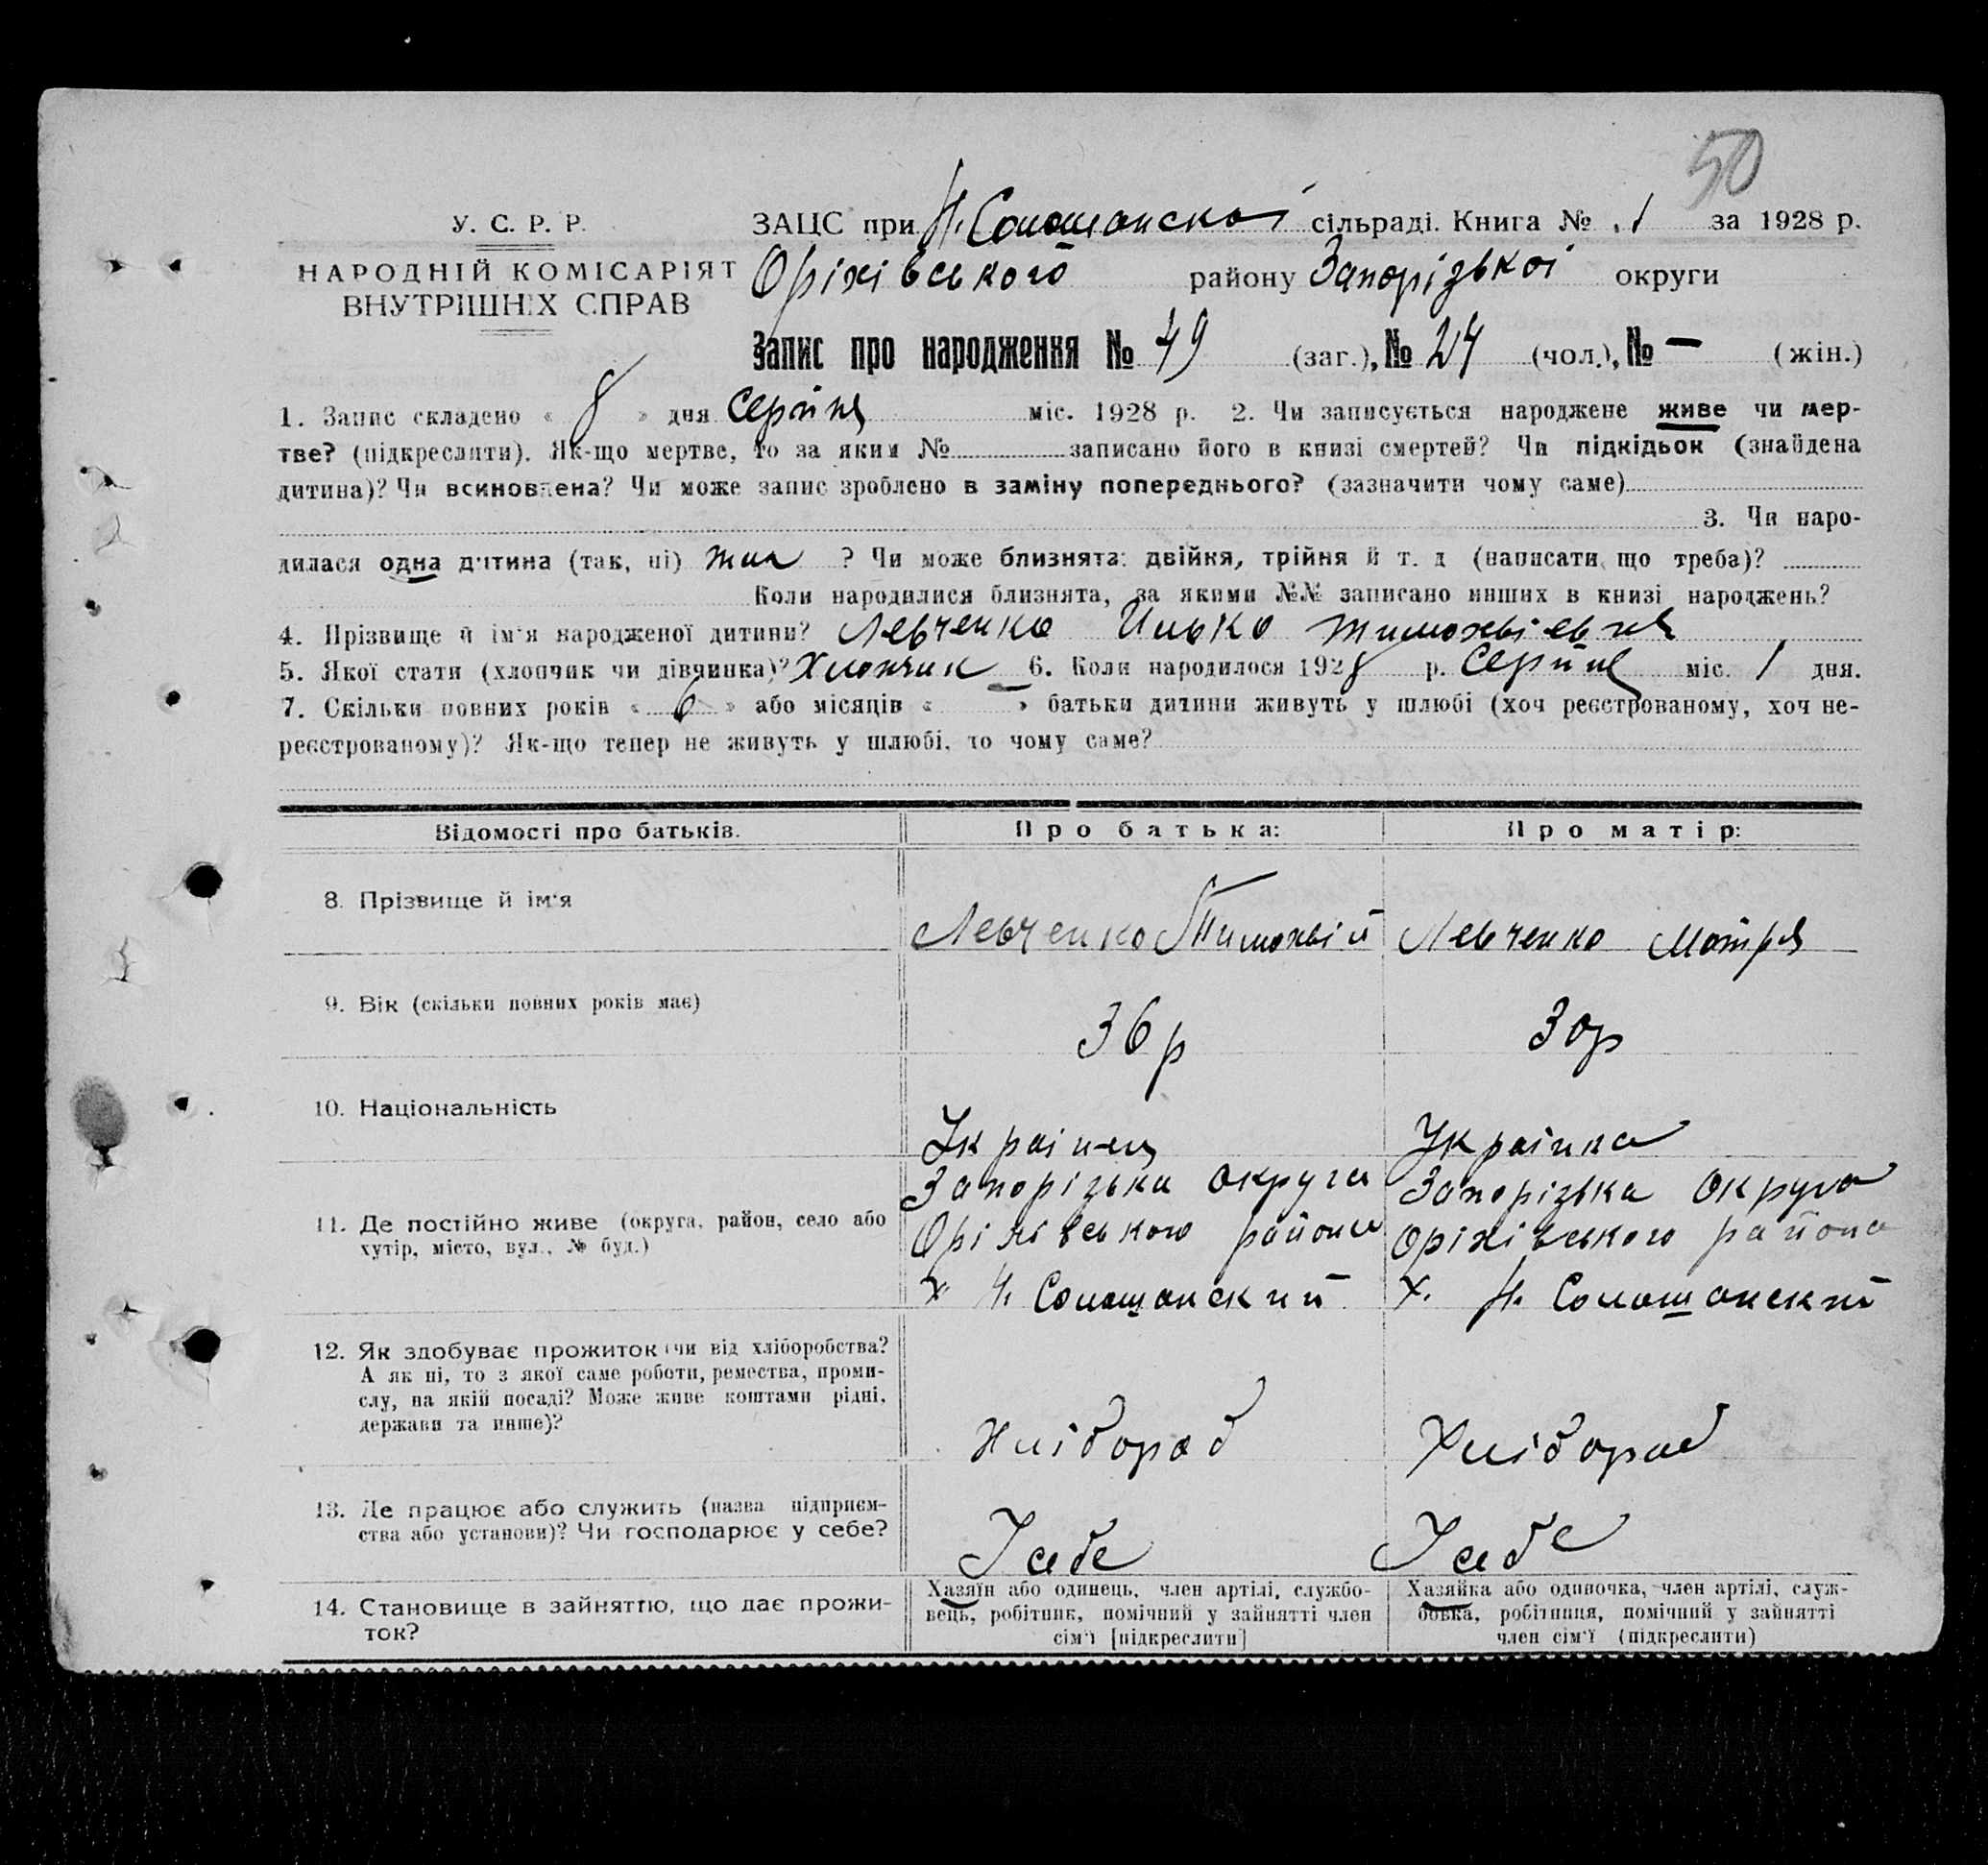 50
У. С. Р. Р.
НАРОДНІЙ КОМІСАРІЯТ
ВНУТРІШНІХ СПРАВ
ЗАЦС при Н. Солошанскоі сільраді. Книга № 1 за 1928 р.
Оріхівського району Запорізькоі округи
Запис про народження № 49 (заг.), № 24 (чол.), № — (жін.)
1. Запис складено « 8 » дня Серпня міс. 1928 р. 2. Чи записується народжене живе чи мер-
тве? (підкреслити). Як-що мертве, то за яким № записано його в книзі смертей? Чи підкідьок (знайдена
дитина)? Чи всиновлена? Чи може запис зроблено в заміну попереднього? (зазначити чому саме)
3. Чи наро-
дилася одна дитина (так, ні) так ? Чи може близнята: двійня, трійня й т. д (написати, що треба)?
Коли народилися близнята, за якими №№ записано инших в книзі народжень?
4. Прізвище й ім'я народженої дитини? Левченко Илько Тимохвієвич
5. Якої стати (хлопчик чи дівчинка)? Хлопчик 6. Коли народилося 1928 р. Серпня міс. 1 дня.
7. Скільки повних років « 6 » або місяців « » батьки дитини живуть у шлюбі (хоч реєстрованому, хоч не-
реєстрованому)? Як-що тепер не живуть у шлюбі, то чому саме?
Відомості про батьків. Про батька: Про матір:
8. Прізвище й ім'я Левченко Тимохвій Левченко Мотря
9. Вік (скільки повних років має) 36 р 30 р
10. Національність Украінец Украінка
11. Де постійно живе (округа, район, село або
хутір, місто, вул., № буд.)
Запорізька округа
Оріхівського района
х. Н. Солошанский
Запорізька округа
Оріхівського района
х. Н. Солошанский
12. Як здобуває прожиток (чи від хліборобства?
А як ні, то з якої саме роботи, ремества, проми-
слу, на якій посаді? Може живе коштами рідні,
держави та инше)?
Хлібороб Хлібороб
13. Де працює або служить (назва підприєм-
ства або установи)? Чи господарює у себе?
У себе У себе
14. Становище в зайняттю, що дає прожи-
ток?
Хазяїн або одинець, член артілі, службо-
вець, робітник, помічний у зайнятті член
сім'ї [підкреслити]
Хазяйка або одиночка, член артілі, служ-
бовка, робітниця, помічний у зайнятті
член сім'ї (підкреслити)